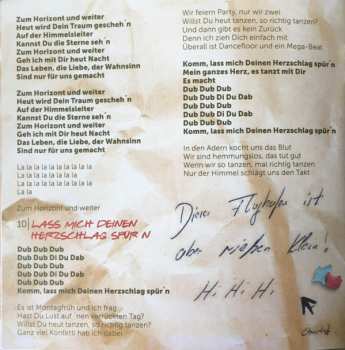 Zum Horizont und weiter
Heut wird Dein Traum gescheh´n
Auf der Himmelsleiter
Kannst Du die Sterne seh´n
Zum Horizont und weiter
Geh mit Dir heut Nacht
Das Leben, die Liebe, der Wahnsinn
Sind nur für uns gemacht
Zum Horizont und weiter
Heut wird Dein Traum gescheh´n
Auf der Himmelsleiter
Kannst Du die Sterne seh´n
Zum Horizont und weiter
Geh ich mit Dir heut Nacht
Das Leben, die Liebe, der Wahnsinn
Sind nur für uns gemacht
La la la la la la la la la la
La la la la la la la la la
La la la la la la la la la la
La la
Zum Horizont und weiter
10| LASS MICH DEINEN
HERZSCHLAG SPÜR´N
Dub Dub Dub
Dub Dub Di Du Dab
Dub Dub Dub
Dub Dub Di Du Dab
Dub Dub Dub
Komm, lass mich Deinen Herzschlag spür´n
Es ist Montagfrüh und ich frag
Hast Du Lust auf ´nen verrückten Tag?
Willst Du heut tanzen, so richtig tanzen?
Ganz viel Konfetti hab ich dabei
Wir feiern Party, nur wir zwei
Willst Du heut tanzen, so richtig tanzen?
Und dann gibt es kein Zurück
Denn ich zieh Dich einfach mit
Überall ist Dancefloor und ein Mega-Beat
Komm, lass mich Deinen Herzschlag spür´n
Mein ganzes Herz, es tanzt mit Dir
Es macht
Dub Dub Dub
Dub Dub Di Du Dab
Dub Dub Dub
Dub Dub Di Du Dab
Dub Dub Dub
Komm, lass mich Deinen Herzschlag spür´n
In den Adern kocht uns das Blut
Wir sind hemmungslos, das tut gut
Wenn wir so tanzen, mal richtig tanzen
Nur der Himmel schlägt uns den Takt
Dieser Flughafen ist
aber riesen klein!
Hi Hi Hi